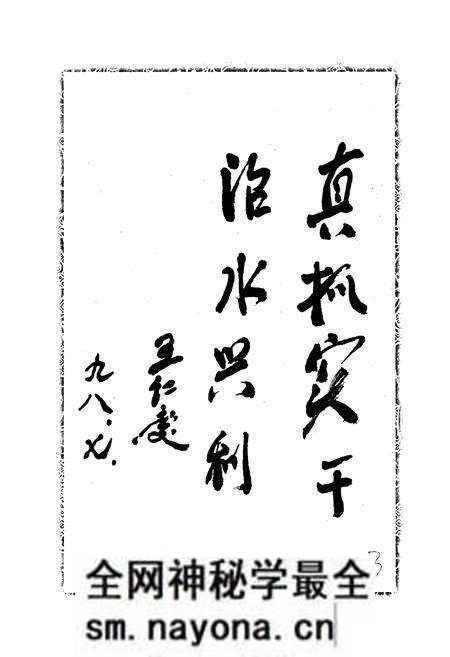 真抓实干
治水兴利
王仁庆
九八.七.
3
全网神秘学最全
sm.nayona.cn